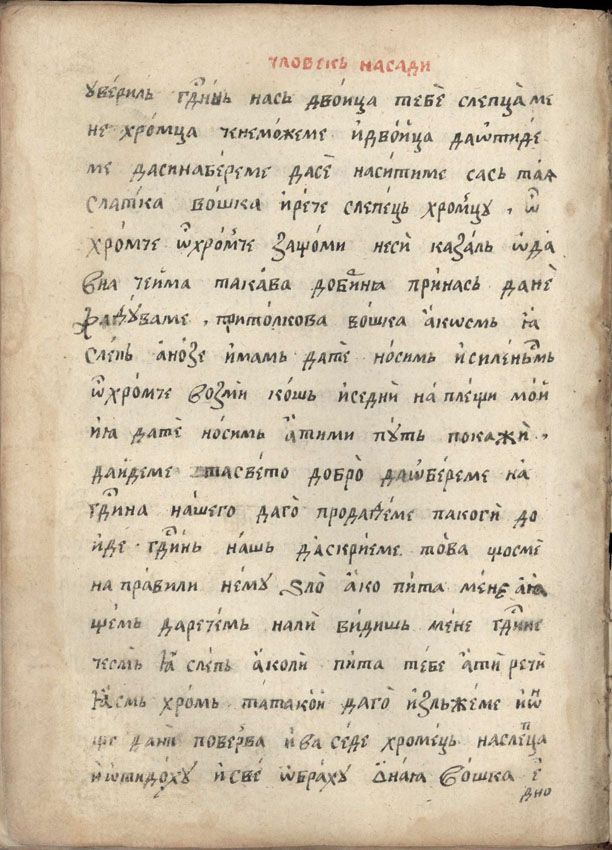 члові́екь насади
увѣриль гдинь нась двоица тебе слепца ме
не хромца че неможеме и двоица да ѿтиде
ме да си набереме да се наситиме сась тая
слатка вошка и рече слепець хромцу , ѿ
хромче ѿ хромче защо ми неси казаль ѿда
вна че има такава добрина при нась да не
радуваме , при толкова вошка ако смь ꙗ
слепь а нозе имамь да те носимь и силень смь
ѿ хромче возми кошь и седни на плещи мои
и ꙗ да те носимь а ти ми путь покажи ,
да идеме та свето добро да ѡбереме на
гдина нашего да го продадеме пак оги до
иде гдинь нашь да скриеме това що сме
направили нему ѕло ако пита мене а ꙗ
щемь да речемь нали видишь мене гдине
че смь ꙗ слепь ако ли пита тебе а ти речи
ꙗ смь хромь та такои да го излъжеме и ѡн
ще да ни поверва и ва седе хромець на слепца
и ѿтидоху и све ѡбраху ѡнаꙗ вошка е
дно